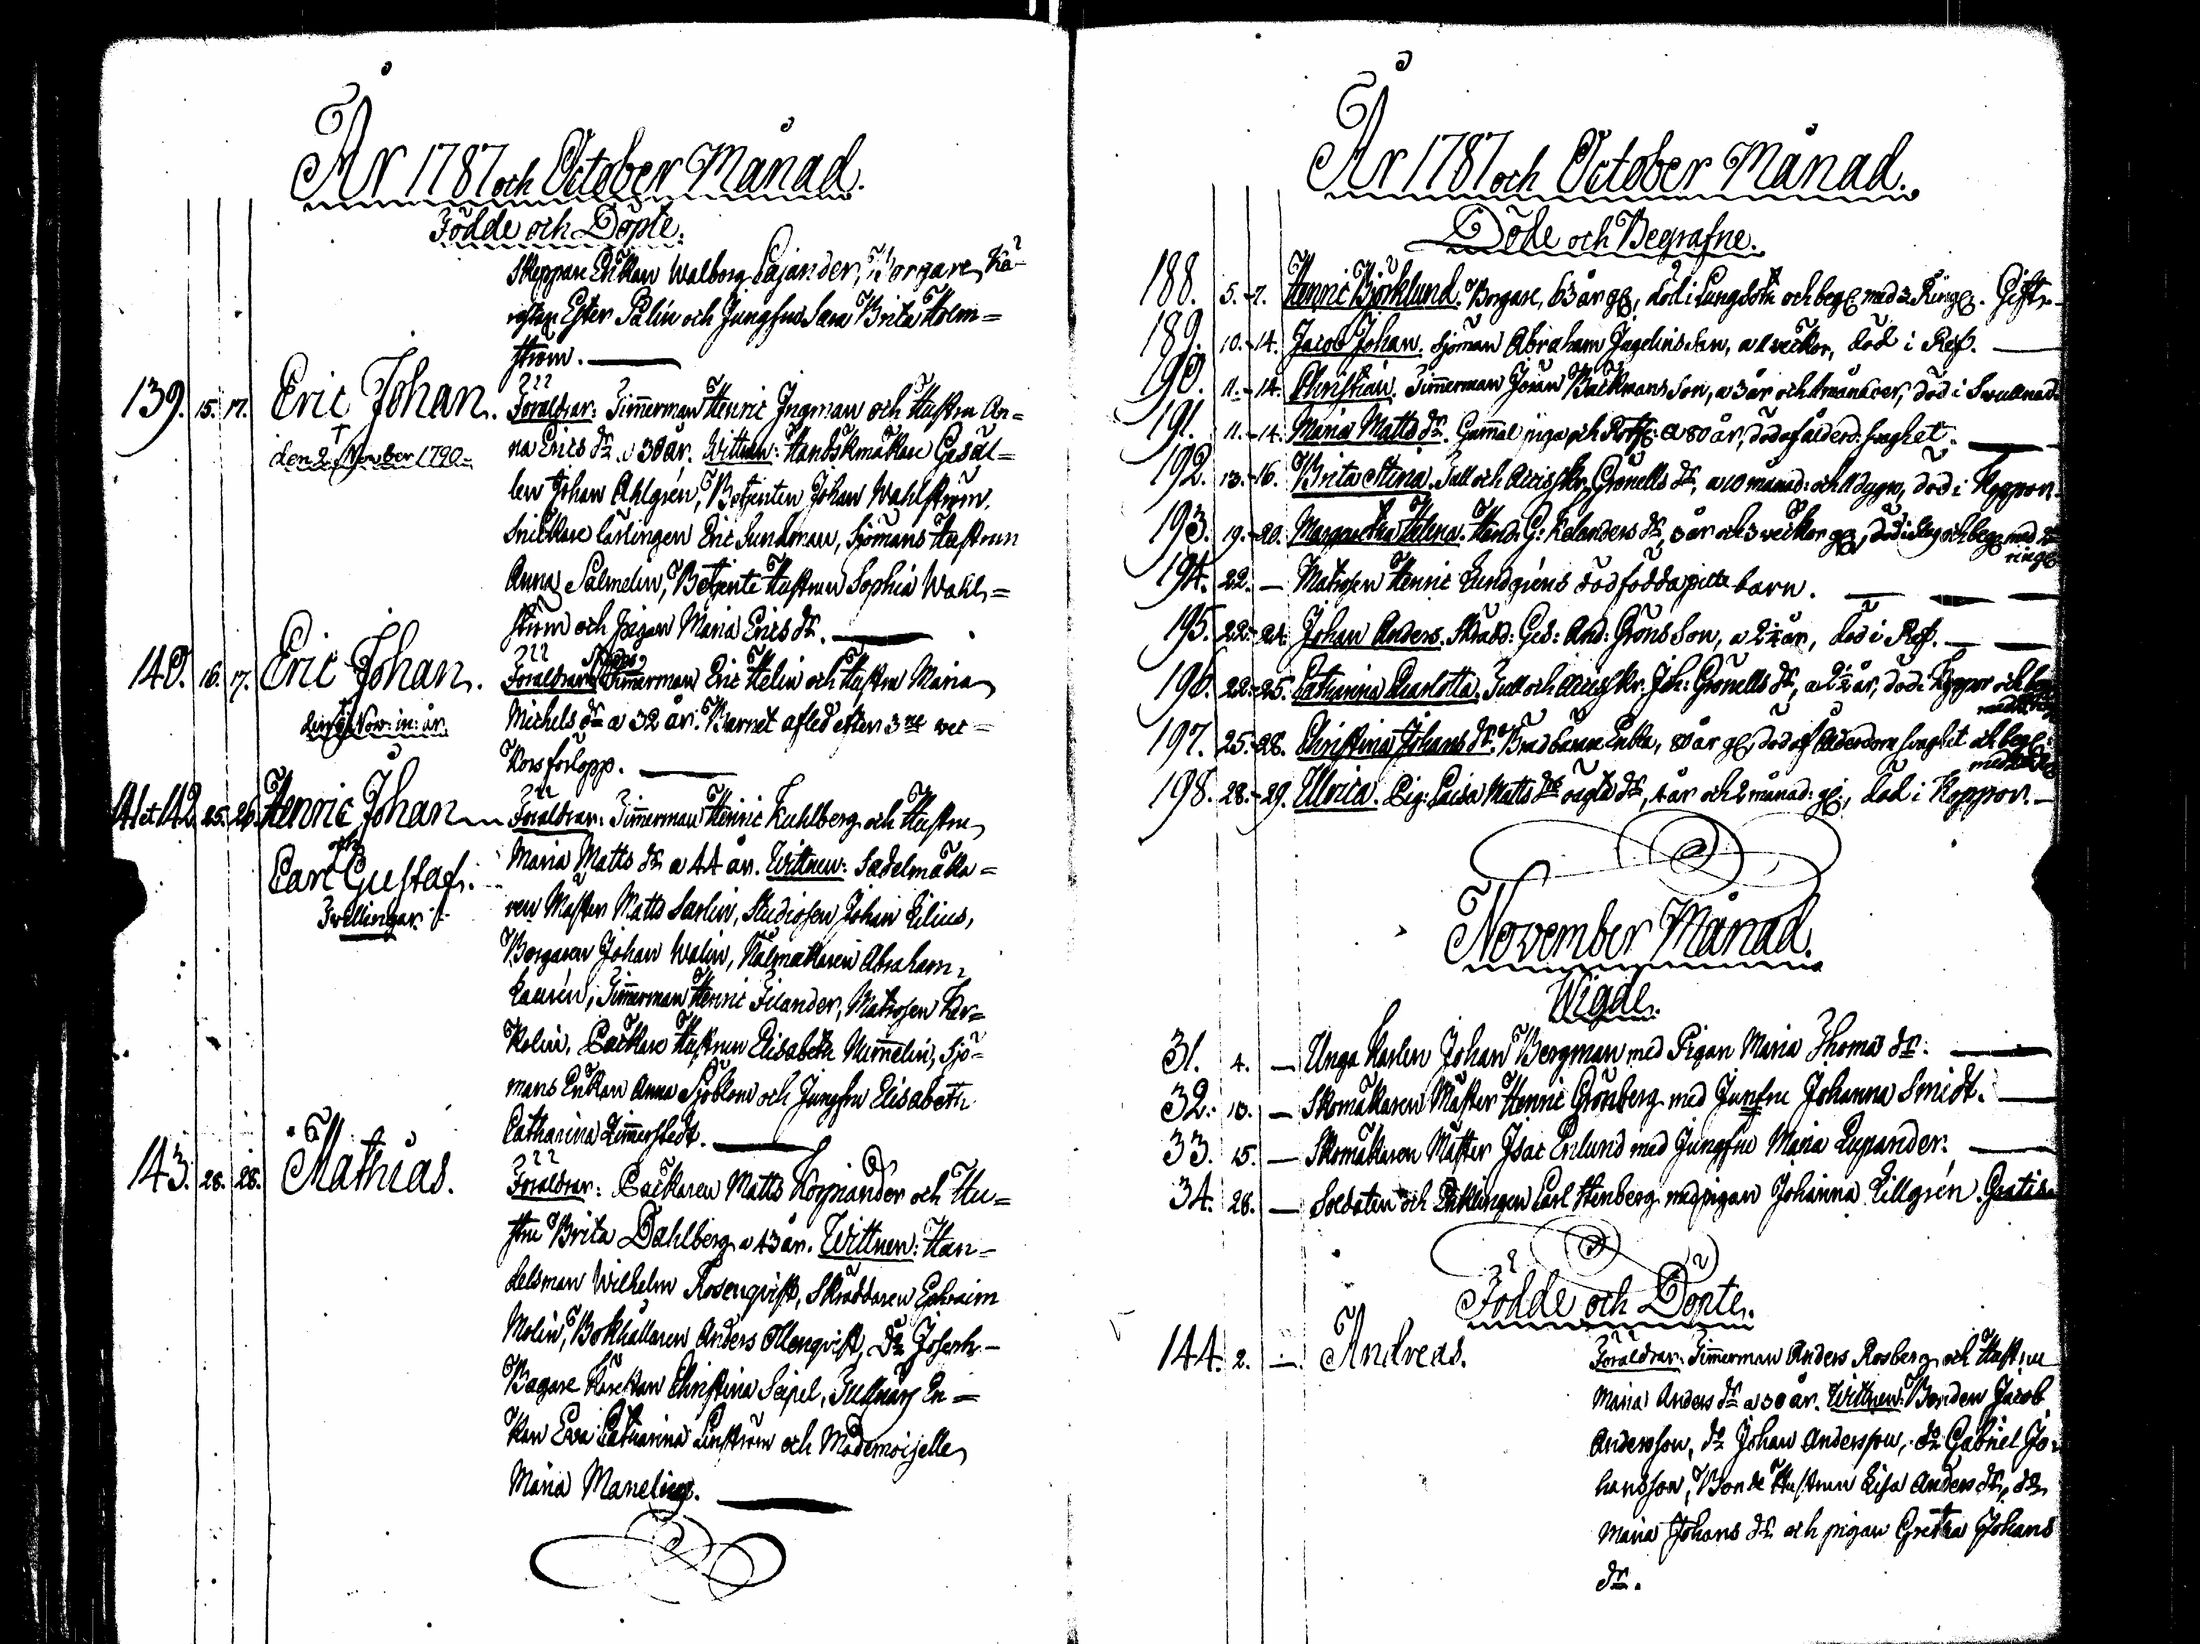 År 1787 och October Månad.
Födde och Döpte.
Skeppare Enkan Walborg Cajander, Borgare Kä-
restan Ester Palin och Jungfru Sara Brita Holm=
ström.
139. 15. 17. Eric Johan. Föräldrar: Timmerman Henric Ingman och Hustru An=
† den 2 November 1790. na Erics dr. a 30 år. Wittnen: Handskmakare Gesäl=
len Johan Ahlgrén, Betjenten Johan Wahlström,
Snickare lärlingen Eric Sundman, Sjömans Hustrun
Anna Salmelin, Betjente Hustrun Sophia Wahl=
ström och pigan Maria Erics dr.
140. 16. 17. Eric Johan. Föräldrar: Timmerman Eric Helin och Hustru Maria
† Nov: in: år. Michels dr a 32 år. Barnet afled efter 3ne vec=
kors förlopp.
141 et 142. 25. 26. Henric Johan Föräldrar: Timmerman Henric Kuhlberg och Hustru
och
Carl Gustaf. Maria Matts dr a 44 år. Wittnen: Sadelmaka=
Twillingar. ren Mäster Matts Sarlin, Studiosen Johan Lilius,
Borgaren Johan Walin, Abraham
Laurén, Timmerman Henric Filander, Matrosen Kar=
kolin, Packare Hustrun Elisabeth Mimmelin, Sjö=
mans Enkan Anna Sjöblom och Jungfru Elisabeth
Catharina Zimmerstedt.
143. 28. 28. Mathias. Föräldrar: Packaren Matts Korpiander och Hu=
stru Brita Dahlberg a 43 år. Wittnen: Han=
delsman Wilhelm Rosenqvist, Skräddaren Ephraim
Molin, Bokhållaren Anders Ollenqvist, do Joseph
Bagare Kärestan Christina Seipel, En=
kan Eva Catharina Linström och Mademoiselle
Maria Manelius.
År 1787 och October Månad.
Döde och Begrafne.
188. 5. 7. Henric Björklund. Borgare, 63 år gl, död i Lungsot och begl med 2 Ringl. Gift.
189. 10. 14. Jacob Johan. Sjöman Abraham Jagelins Son, a veckor, död i Ref.
190. 11. 14. Christian. Timmerman Johan Backmans Son, a 3 år och månader, död i
191. 11. 14. Maria Matts dr. Gammal piga a 80 år, död af ålderd: svaghet.
192. 13. 16. Brita Stina. Tull och Grönells dr, a 10 månad: och dygn, död i Koppor.
193. 19. 20. Margaretha Helena. Hand. G: Kelanders dr, 3 år och 3 veckor gl,
ringl
194. 22. — Matrosen Henric Lundgréns dödfödda barn.
195. 22. 24. Johan Anders. Skrädd: Ges: And: Gröns Son, a 2 1/2 år, död i Ref.
196. 22. 25. Catharina Charlotta. Tull och Joh: Grönells dr, a 2 1/2 år, död i Koppor och
197. 25. 28. Christina Johans dr. Enka, 80 år gl, död af Ålderdoms svaghet och begl:
198. 28. 29. Ulrica. Pig: Caisa Matts drs oägta dr, 1 år och 2 månad: gl, död i Koppor.
November Månad.
Wigde.
31. 4. — Unga Karlen Johan Bergman med Pigan Maria Thomæ dr:
32. 13. — Skomakaren Mäster Henric Grönberg med Junfru Johanna Smidt.
33. 15. — Skomakaren Mäster Isac Enlund med Jungfru Maria Lupander.
34. 28. — Soldaten och Enklingen Carl Stenberg med pigan Johanna Lillgrén. Gratis.
Födde och Döpte.
144. 2. — Andreas. Föräldrar: Timmerman Anders Rosberg och Hustru
Maria Anders dr a 30 år. Wittnen: Bonden Jacob
Andersson, do Johan Andersson, do Gabriel Jo-
hansson, Bonde Hustrun Lisa Anders dr, do
Maria Johans dr och pigan Gretha Johans
dr.